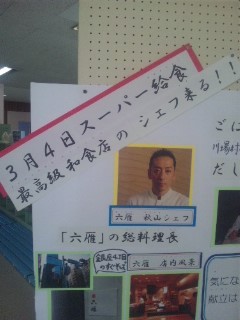 3月4日スーパー給食
最高級和食店のシェフ来る!!
六雁 秋山シェフ
「六雁」の総料理長
六雁 店内風景
ごに
川場村
だし
気にな
献立は